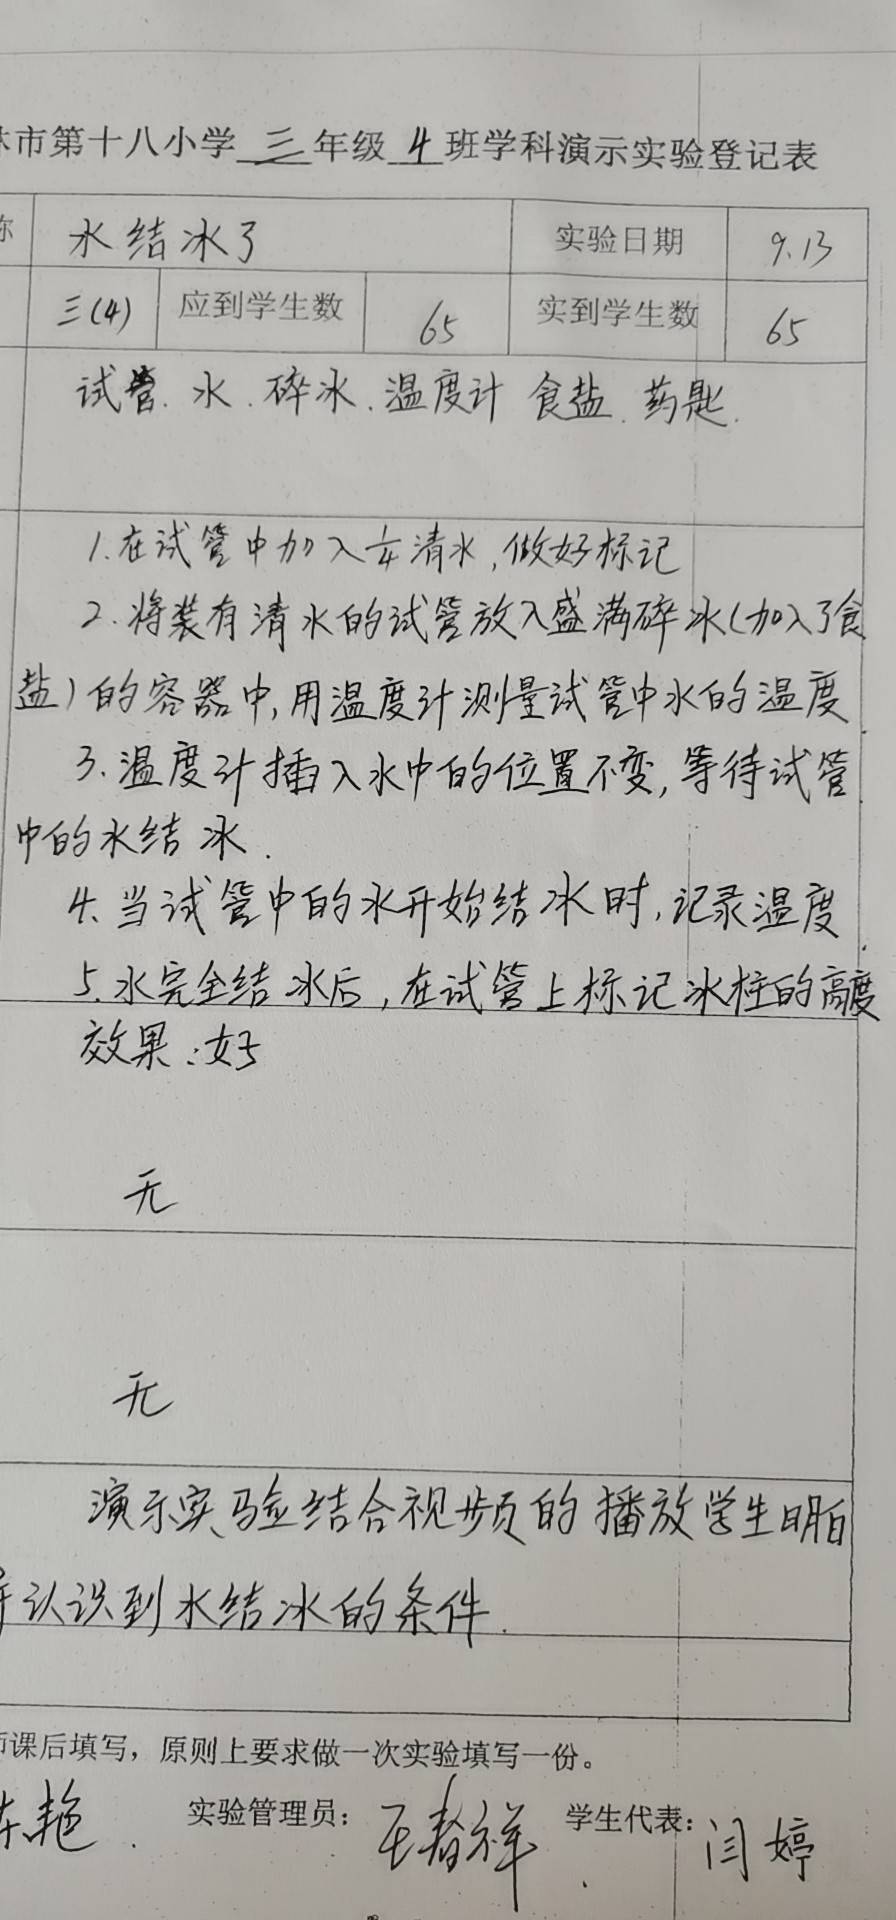 市第十八小学三年级4班学科演示实验登记表
称 水结冰了 实验日期 9.13
三(4) 应到学生数 65 实到学生数 65
试管.水.碎冰.温度计 食盐.药匙.
1.在试管中加入1/4清水,做好标记
2.将装有清水的试管放入盛满碎冰(加入了食
盐)的容器中,用温度计测量试管中水的温度
3.温度计插入水中的位置不变,等待试管
中的水结冰.
4.当试管中的水开始结冰时,记录温度
5.水完全结冰后,在试管上标记冰柱的高度
效果:好
无
无
演示实验结合视频的播放学生明白
并认识到水结冰的条件.
师课后填写,原则上要求做一次实验填写一份。
艳 实验管理员: 王春祥 学生代表: 闫婷